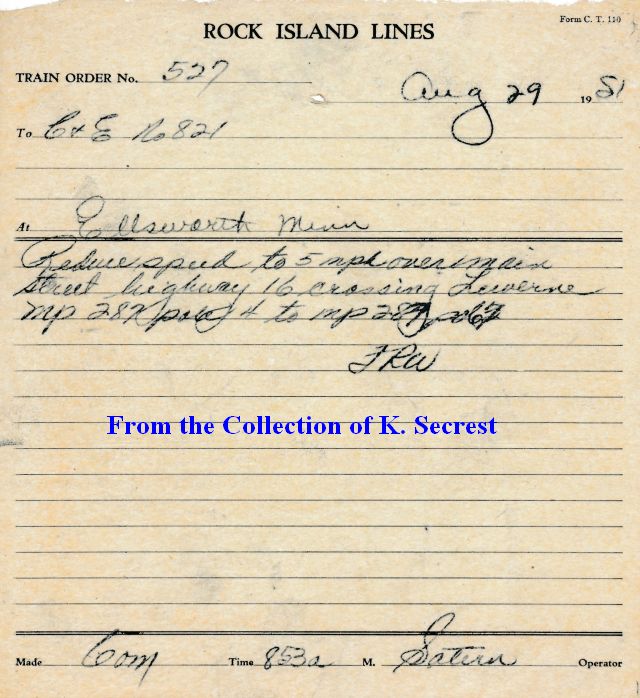 Form C. T. 110
ROCK ISLAND LINES
TRAIN ORDER No. 527
Aug 29 1951
To C & E No 821
At Ellsworth Minn
Reduce speed to 5 mph over main
street highway 16 crossing Luverne
mp 28 pole 4 to mp 28
FRW
From the Collection of K. Secrest
Made Com Time 853a M. Satern Operator